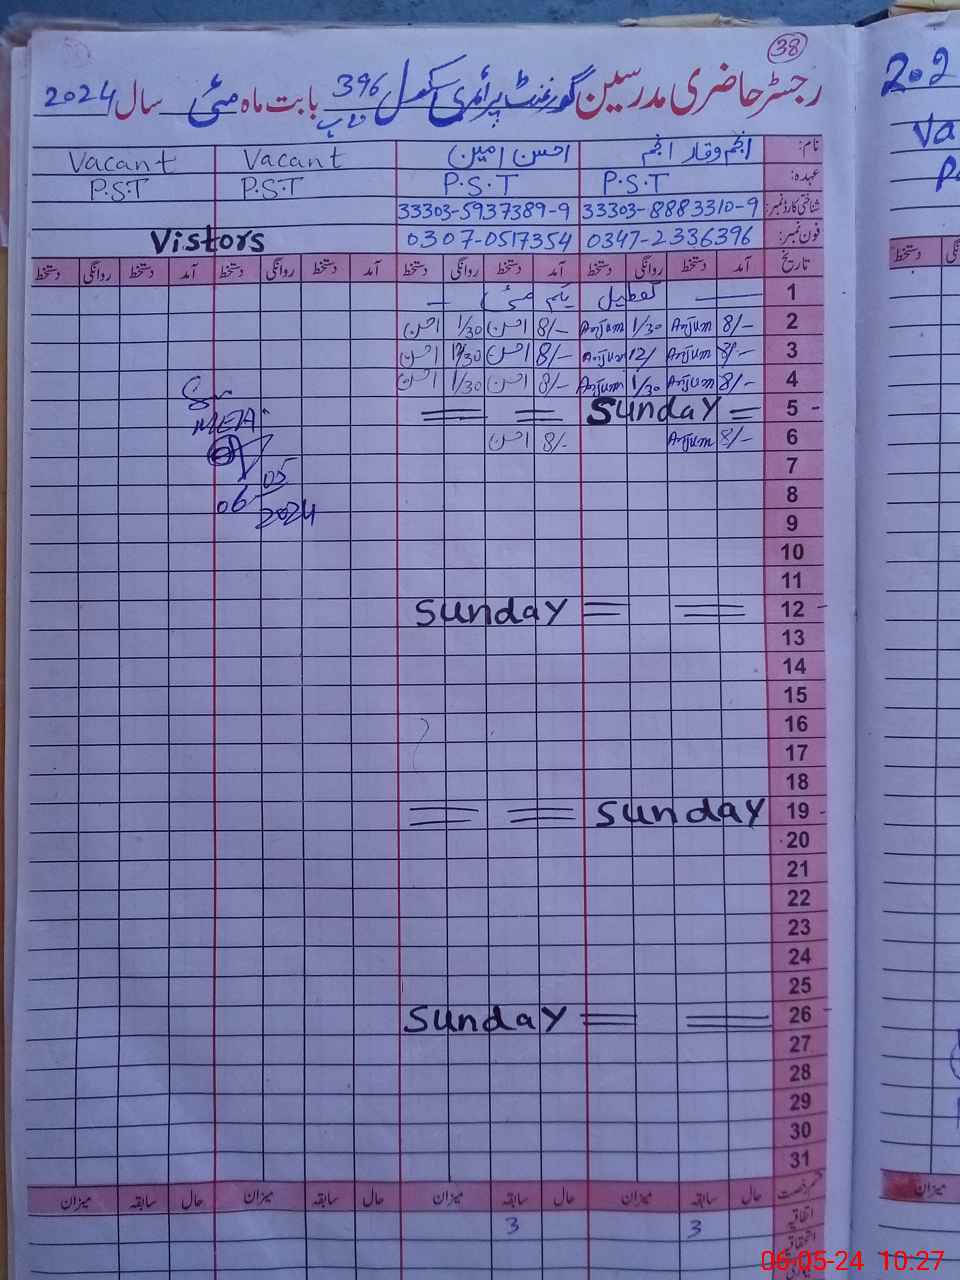 38
رجسٹر حاضری مدرسین گورنمنٹ پرائمری سکول 396 بابت ماہ مئی سال 2024
نام: انجم وقار انجم احسن امین Vacant Vacant
عہدہ: P.S.T P.S.T P.S.T P.S.T
شناختی کارڈ نمبر: 33303-8883310-9 33303-5937389-9
فون نمبر: 0347-2336396 0307-0517354 Vistors
تاریخ آمد دستخط روانگی دستخط آمد دستخط روانگی دستخط آمد دستخط روانگی دستخط آمد دستخط روانگی دستخط
1 تعطیل یکم مئی
2 8/- Anjum 1/30 Anjum 8/- احسن 1/30 احسن
3 8/- Anjum 12/ Anjum 8/- احسن 12/30 احسن
4 8/- Anjum 1/30 Anjum 8/- احسن 1/30 احسن
5 Sunday
MEA
6 8/- Anjum 8/- احسن
7
05
8
06
2024
9
10
11
12 Sunday
13
14
15
16
17
18
19 Sunday
20
21
22
23
24
25
26 Sunday
27
28
29
30
31
قسم رخصت حال سابقہ میزان حال سابقہ میزان حال سابقہ میزان حال سابقہ میزان
اتفاقیہ 3 3
استحقاقیہ
202
Va
P
دستخط
میزان
06-05-24 10:27